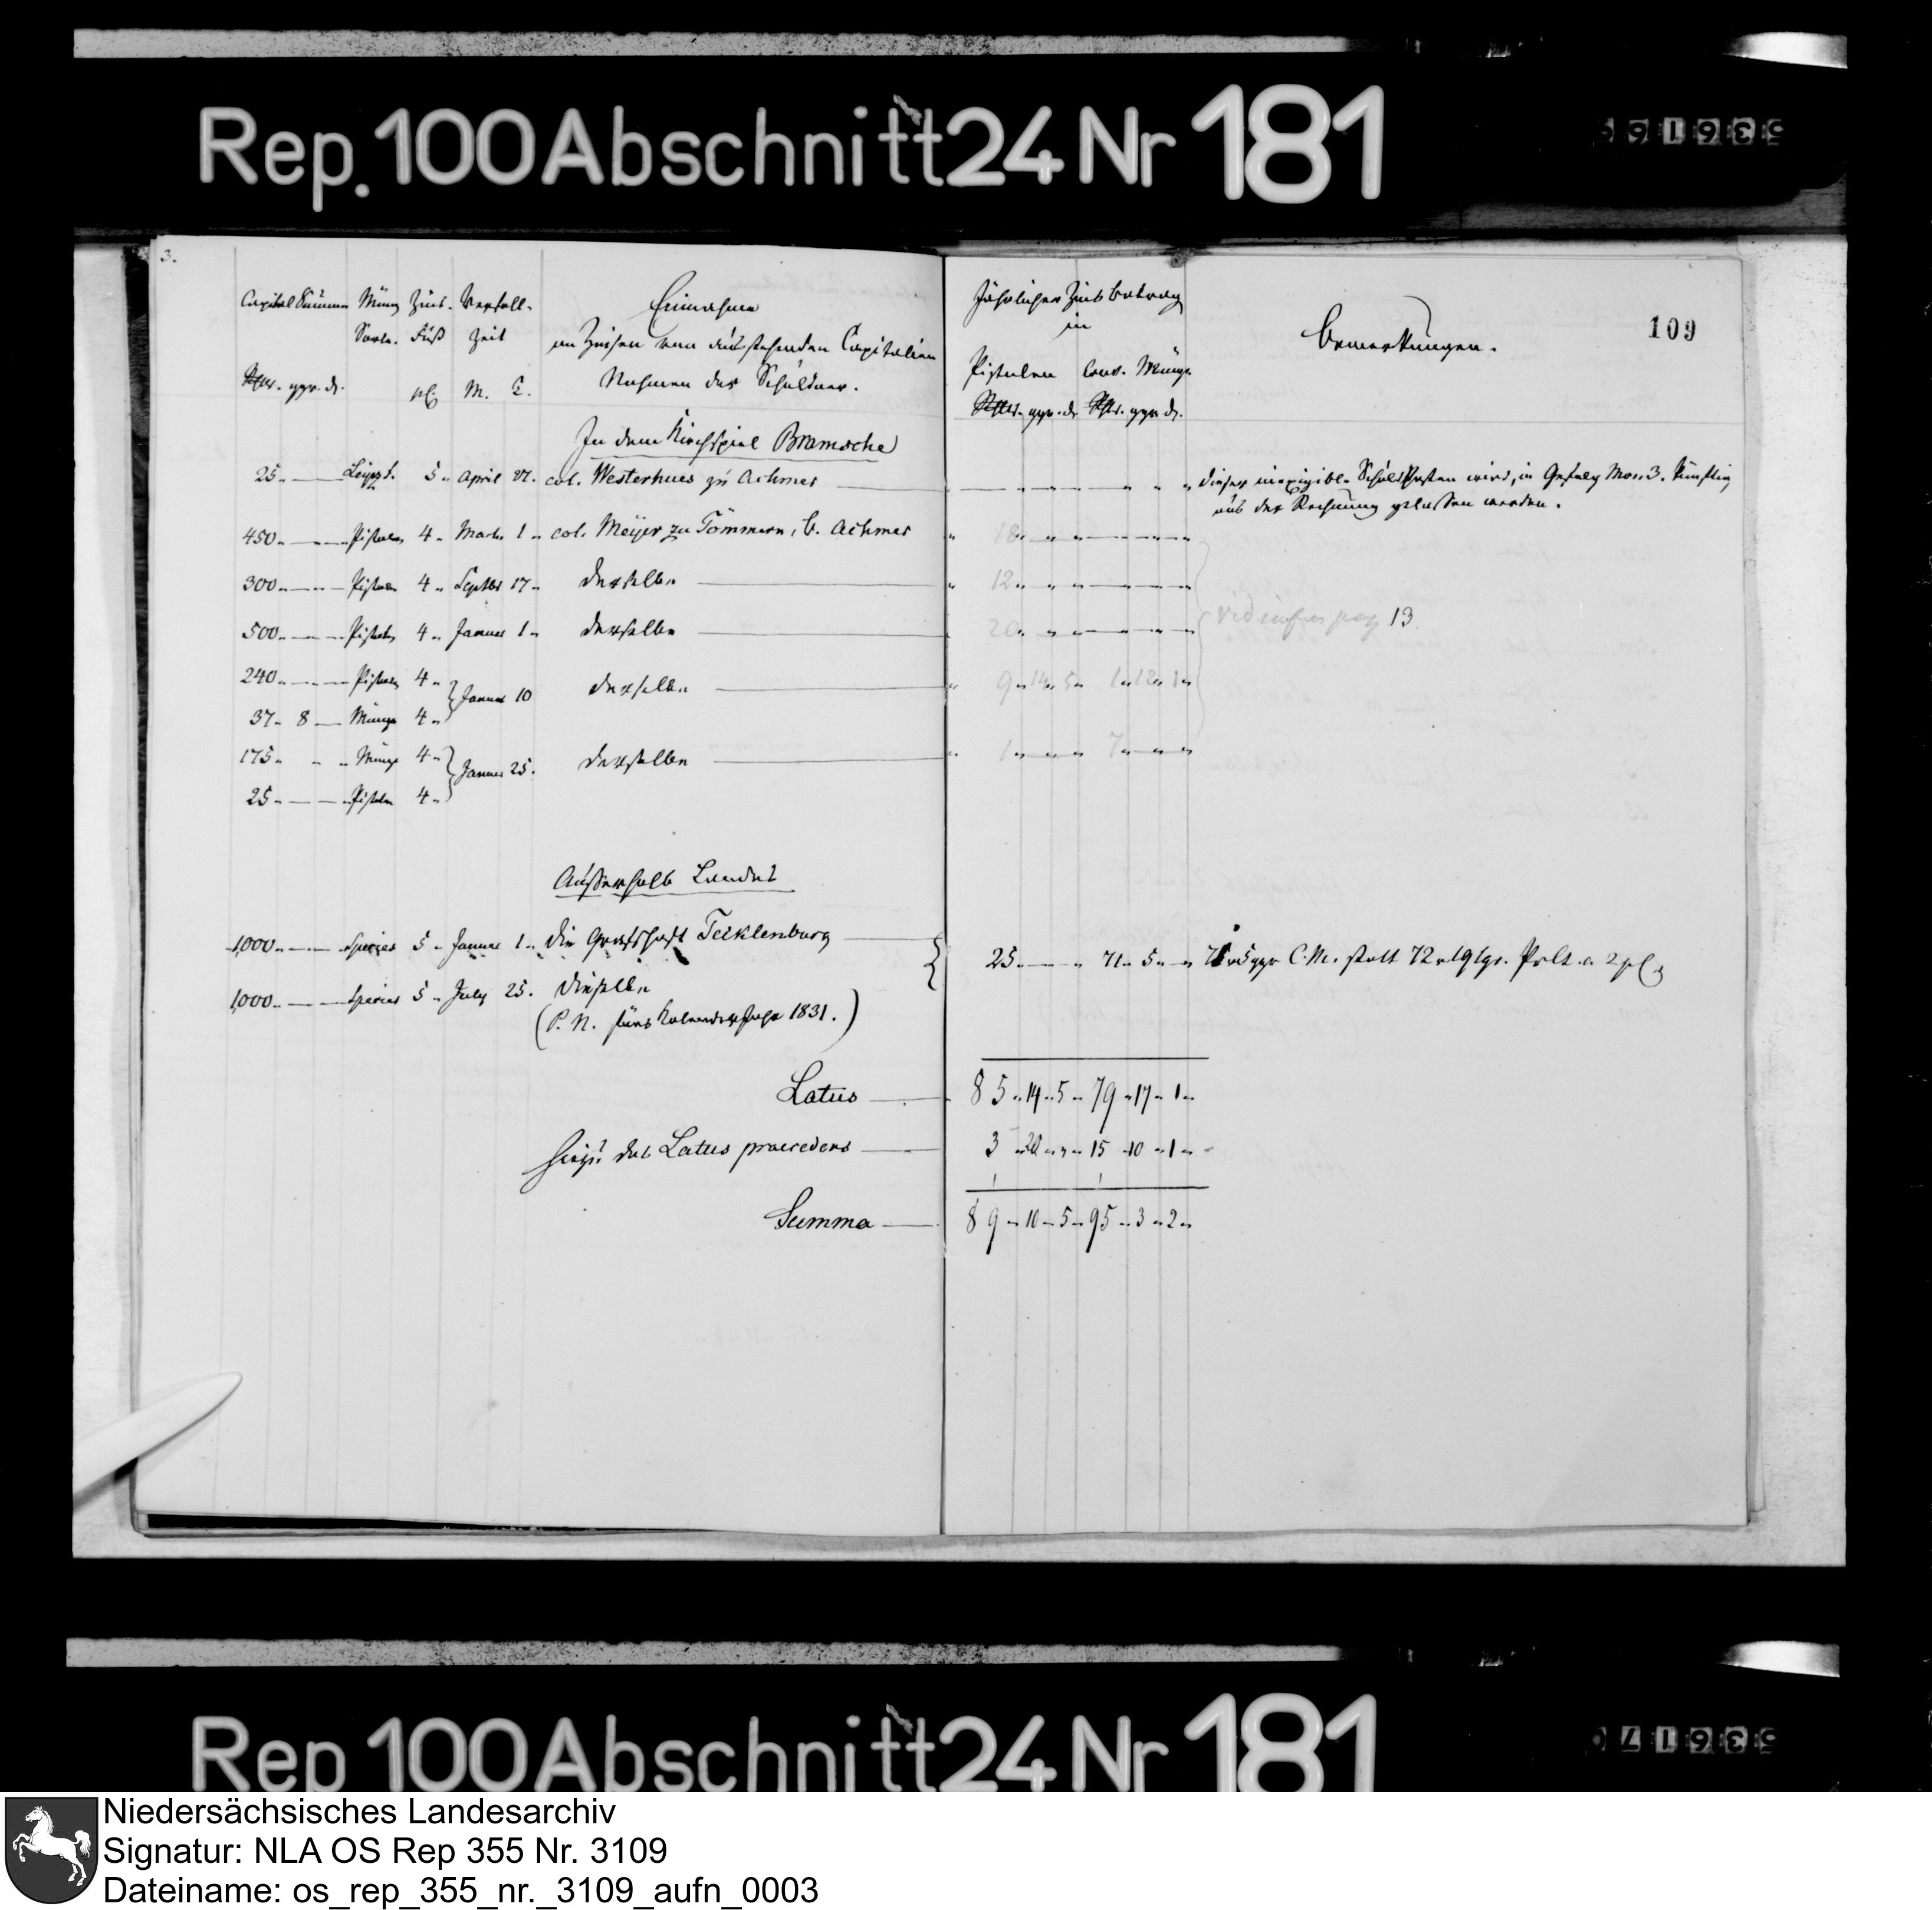 Rep. 100 Abschnitt 24 Nr 181
3.
109
Capital Summe Münz Zins- Verfall-
Sorte. Fuß Zeit
Rthlr. ggr. d. pC. M. T.
Einnahme
an Zinsen von ausstehenden Capitalien
Nahmen der Schuldner.
Jährlicher Zins Betrag
in
Pistolen Conv. Münze
Rthlr. ggr. d. Rthlr. ggr. d.
Bemerkungen.
In dem Kirchspiel Bramsche
25 " — 5 " April 27. col. Westerhues zu Achmer — dieser inexigible Schuldposten wird, in Gefolg Mon. 3. künftig
aus der Rechnung gelassen werden.
450 " — Pistolen 4 " Martz 1 " col. Meijer zu Tömmern, B. Achmer " 18 " " " — " — " — "
300 " — Pistolen 4 " Septbr 17 " derselbe — " 12 " " " — " — " — "
500 " — Pistolen 4 " Januar 1 " derselbe — 20 " " " — " — " — "
vid infra pag 13
240 " — Pistolen 4 "
Januar 10 derselbe — " 9 " 14 " 5 " 1 " 12 " 1 "
37 " 8 — Münze 4 "
175 " " " Münze 4 "
Januar 25. derselbe — " 1 " " " 7 " " "
25 " — Pistolen 4 "
Ausserhalb Landes
1,000 " — Species 5 " Januar 1 " die Grafschaft Tecklenburg —
25 " — " 71 " 5 " " C. M. statt 72 r 19 lgr. Prlt. a 2 pC.
1,000 " — Species 5 " July 25. dieselbe
(P. N. fürs Kalenderjahr 1831.)
Latus — 85 " 14 " 5 " 79 " 17 " 1 "
hiezu das Latus praecedens — 3 " 20 " " " 15 " 10 " 1 "
Summa — 89 " 10 " 5 " 95 " 3 " 2 "
Rep 100 Abschnitt 24 Nr 181
Niedersächsisches Landesarchiv
Signatur: NLA OS Rep 355 Nr. 3109
Dateiname: os_rep_355_nr._3109_aufn_0003